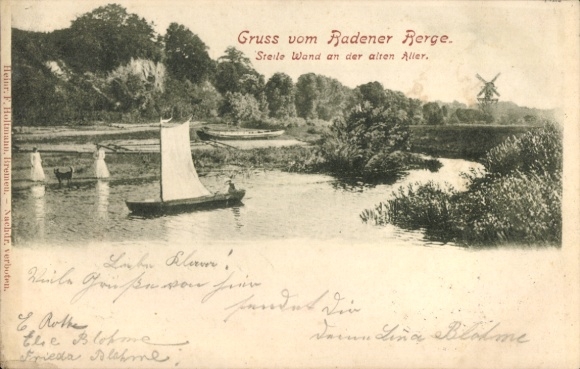 Gruss vom Badener Berge.
Steile Wand an der alten Aller.
Heinr. F. Hollmann, Bremen. – Nachdr. verboten.
Viele Grüße von hier
sendet Dir
Deine Lina Blohme
E. Rothe
Else Blohme
Frieda Blohme